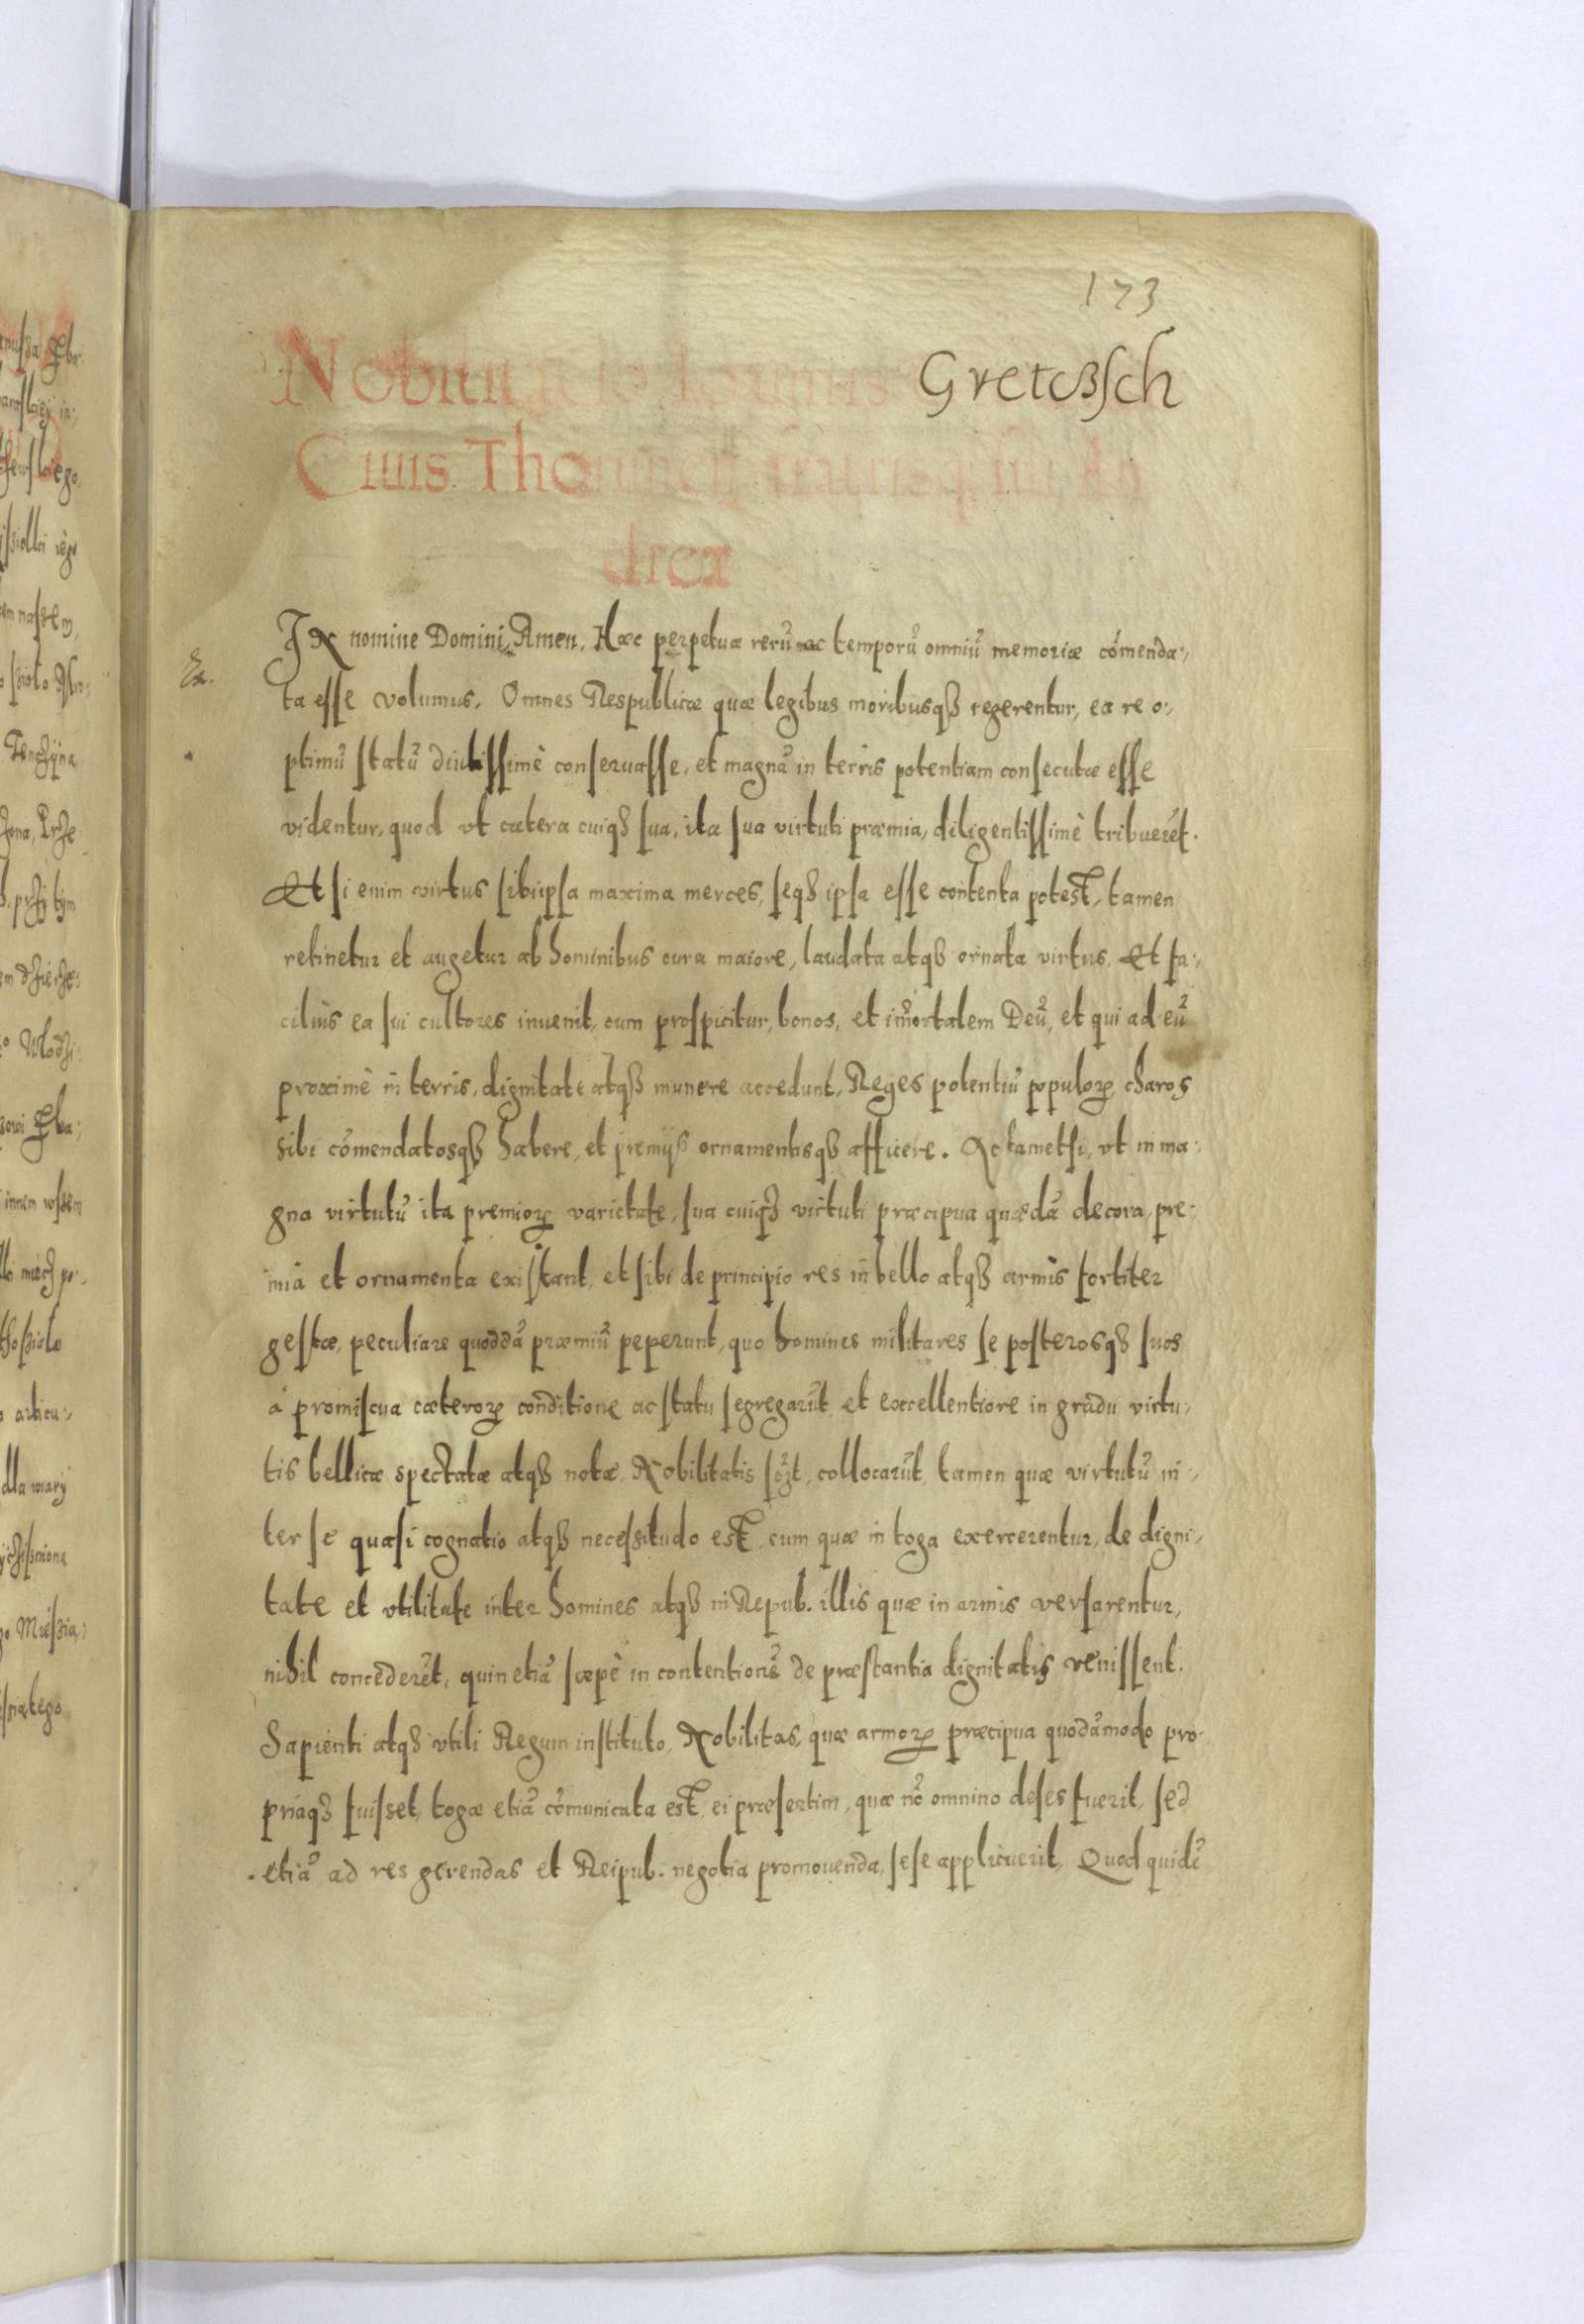 173
Nobilitatio Ioannis Gretcʒſch
Ciuis Thorunen̄
drea
Ex.
IN nomine Domini, Amen. Hæc perpetuæ rerũ ac temporũ omniũ memoriæ cõmenda:,
ta eſſe volumus. Omnes Respublicæ quæ legibus moribusqʒ regerentur, ea re o:,
ptimũ ſtatũ diutiſſimè conſeruaſſe, et magnã in terris potentiam conſecutæ eſſe
videntur, quod vt cætera cuiqʒ ſua, ita ſua virtuti præmia, diligentiſſimè tribuerẽt.
Etſi enim virtus ſibiipſa maxima merces, ſeqʒ ipſa eſſe contenta poteſt, tamen
retinetur et augetur ab hominibus cura maiore, laudata atqʒ ornata virtus. Et fa:,
ciliùs ea ſui cultores inuenit, cum proſpicitur, bonos, et im̃ortalem Deũ, et qui ad eũ
proximè in terris, dignitate atqʒ munere accedunt, Reges potentiũ populoꝝ, charos
ſibi cõmendatosqʒ habere, et premijs ornamentisqʒ afficere. Ac tametſi, vt in ma:
gna virtutũ ita premioꝝ varietate, ſua cuiqʒ virtuti præcipua quædã decora, pre:
mia et ornamenta exiſtant, et ſibi de principio res in bello atqʒ armis fortiter
geſtæ, peculiare quoddã præmiũ peperunt, quo homines militares ſe poſterosqʒ ſuos
à promiſcua cæteroꝝ conditione ac ſtatu ſegregarũt, et excellentiore in gradu virtu:
tis bellicæ spectatæ atqʒ notæ, Nobilitatis collocarũt, tamen quæ virtutũ in:,
ter ſe quaſi cognatio atqʒ neceſsitudo eſt, cum quæ in toga exercerentur, de digni:,
tate et vtilitate inter homines atqʒ in Repub. illis quæ in armis verſarentur,
nihil concederẽt, quin etiã ſæpè in contentionẽ de præſtantia dignitatis veniſſent.
Sapienti atqʒ vtili Regum inſtituto, Nobilitas, quæ armoꝝ præcipua quodãmodo pro:
priaqʒ fuiſset, togæ etiã cõmunicata eſt, ei præſertim, quæ nõ omnino deſes fuerit, ſed
etiã ad res gerendas et Reipub. negotia promouenda, ſeſe applicuerit, Quod quidẽ